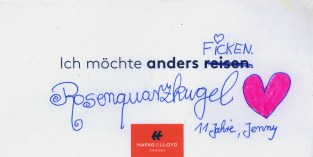 FICKEN.
Ich möchte anders reisen.
Rosenquarzkugel
11 Jahre, Jenny
HAPAG-LLOYD
CRUISES